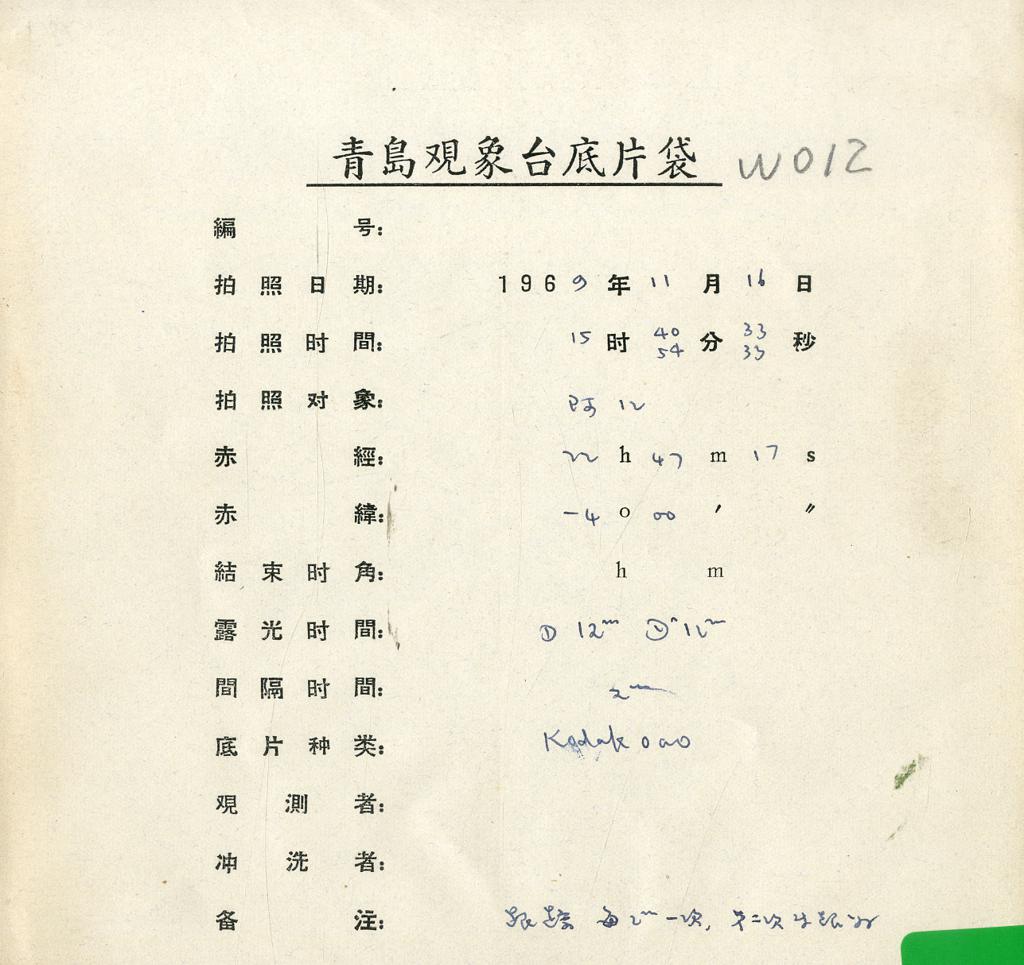 青島观象台底片袋 W012
編 号:
拍照日期: 1969年11月16日
拍照时間: 15时 40 分 33 秒
54 33
拍照对象: 阿12
赤 經: 22 h 47 m 17 s
赤 緯: -4 o 00 ′ ″
結束时角: h m
露光时間: ① 12m 12m
間隔时間: 2m
底片种类: Kodak oao
观測者:
冲洗者:
备 注: 每2m一次, 第二次